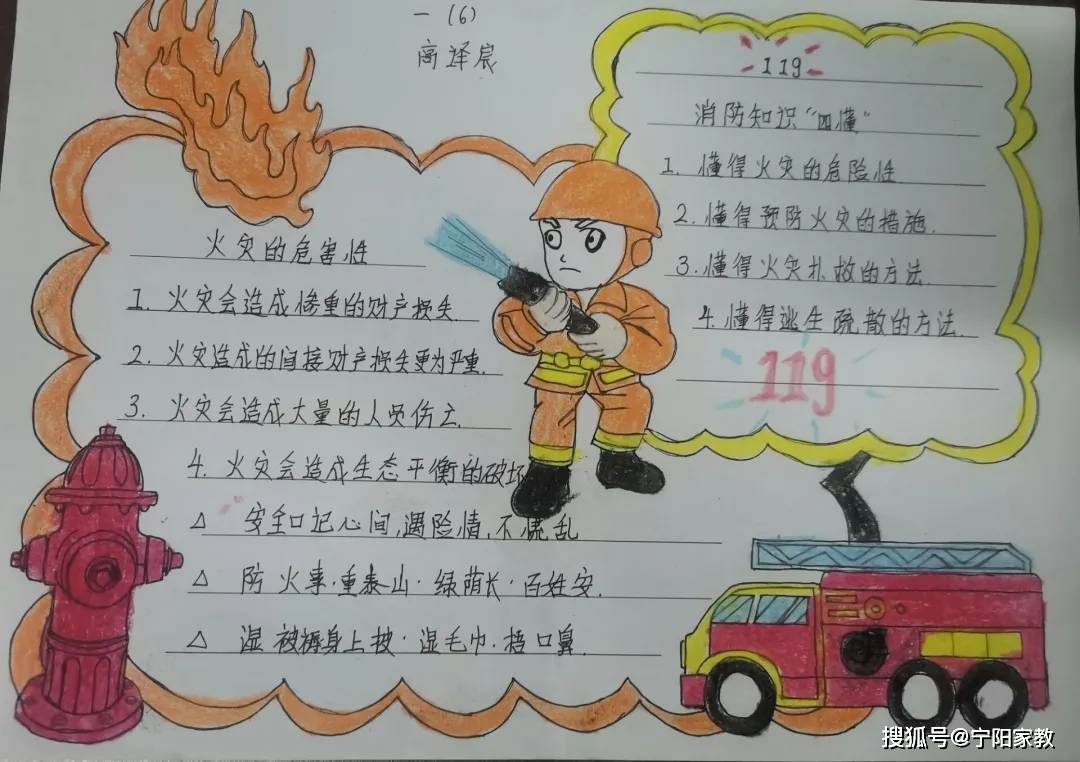 一(6)
高泽宸
火灾的危害性
1. 火灾会造成惨重的财产损失.
2. 火灾造成的间接财产损失更为严重.
3. 火灾会造成大量的人员伤亡.
4. 火灾会造成生态平衡的破坏
△ 安全口记心间,遇险情,不慌乱
△ 防火事·重泰山·绿荫长·百姓安.
△ 湿被褥身上披·湿毛巾·捂口鼻.
119
消防知识“四懂”
1. 懂得火灾的危险性.
2. 懂得预防火灾的措施.
3. 懂得火灾扑救的方法.
4. 懂得逃生疏散的方法.
119
搜狐号@宁阳家教